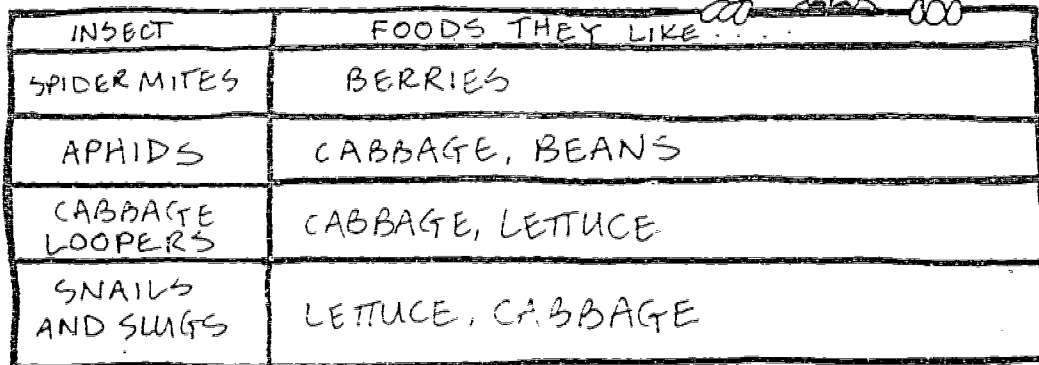 INSECT FOODS THEY LIKE....
SPIDER MITES BERRIES
APHIDS CABBAGE, BEANS
CABBAGE
LOOPERS CABBAGE, LETTUCE
SNAILS
AND SLUGS LETTUCE, CABBAGE